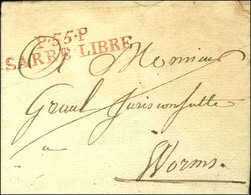 P.55.P
SARRE LIBRE
A Monsieur
Graul Jurisconsulte
a
Worms.